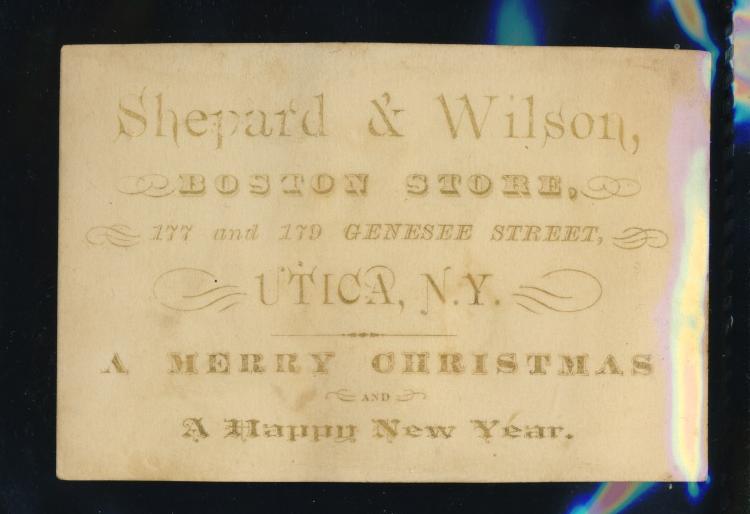 Shepard & Wilson,
BOSTON STORE,
177 and 179 GENESEE STREET,
UTICA, N.Y.
A MERRY CHRISTMAS
AND
A Happy New Year.